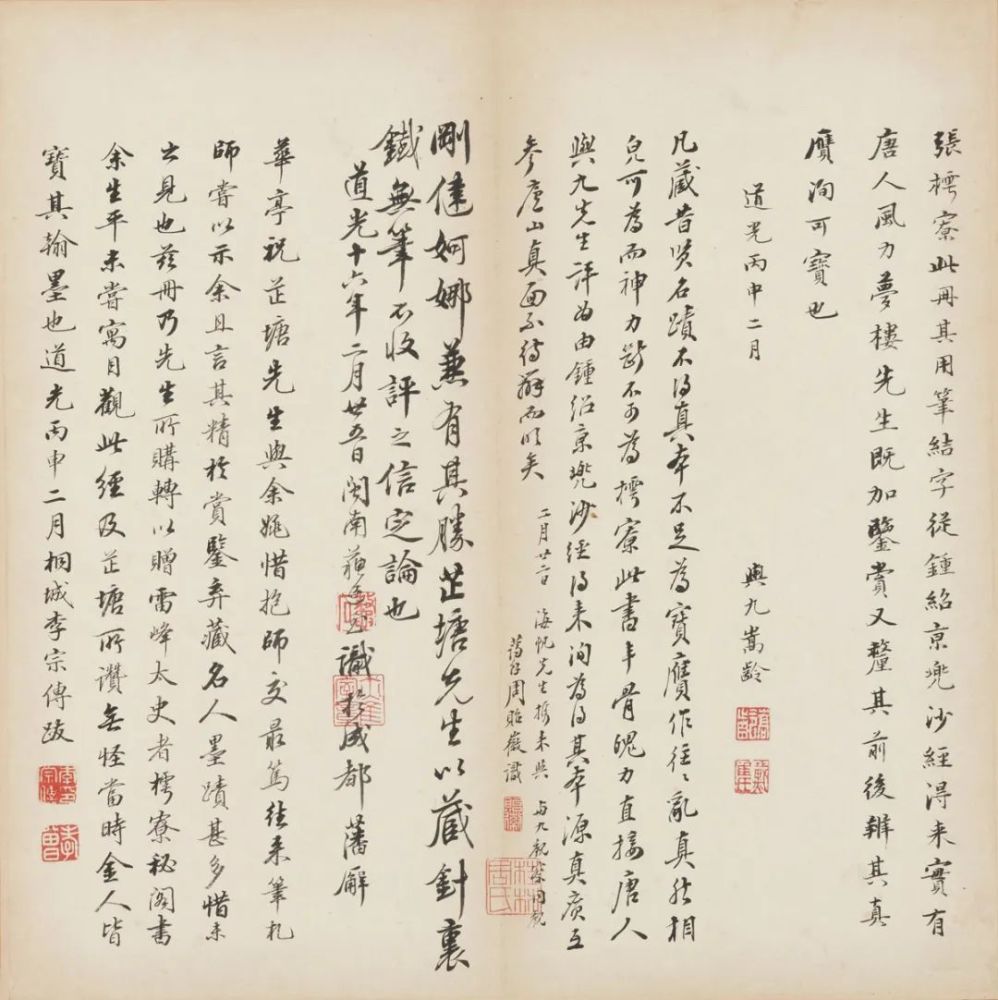 張樗寮此冊其用筆結字從鍾紹京兜沙經得来實有
唐人風力夢樓先生既加鑒賞又釐其前後辨其真
贋洵可寶也
道光丙申二月
與九嵩齡
凡藏昔賢名蹟不得真本不足為寶贋作往々亂真然相
皃可為而神力斷不可為樗寮此書丰骨魄力直接唐人
與九先生評為由鍾紹京兜沙經得来洵為得其本源真贋互
参廬山真面不待辨而明矣
二月廿二日
海帆先生携来與
与九觀察同觀
周貽徽識
剛健婀娜兼有其勝芷塘先生以藏針裹
鐵無筆不收評之信定論也
道光十六年二月廿五日閩南蘇廷玉識於成都藩廨
華亭祝芷塘先生與余姚惜抱師交最篤往来筆札
師嘗以示余且言其精於賞鑒弆藏名人墨蹟甚多惜未
之見也茲冊乃先生所購轉以贈雷峰太史者樗寮秘閣書
余生平未嘗寓目觀此經及芷塘所讚無怪當時金人皆
寶其翰墨也道光丙申二月桐城李宗傳跋